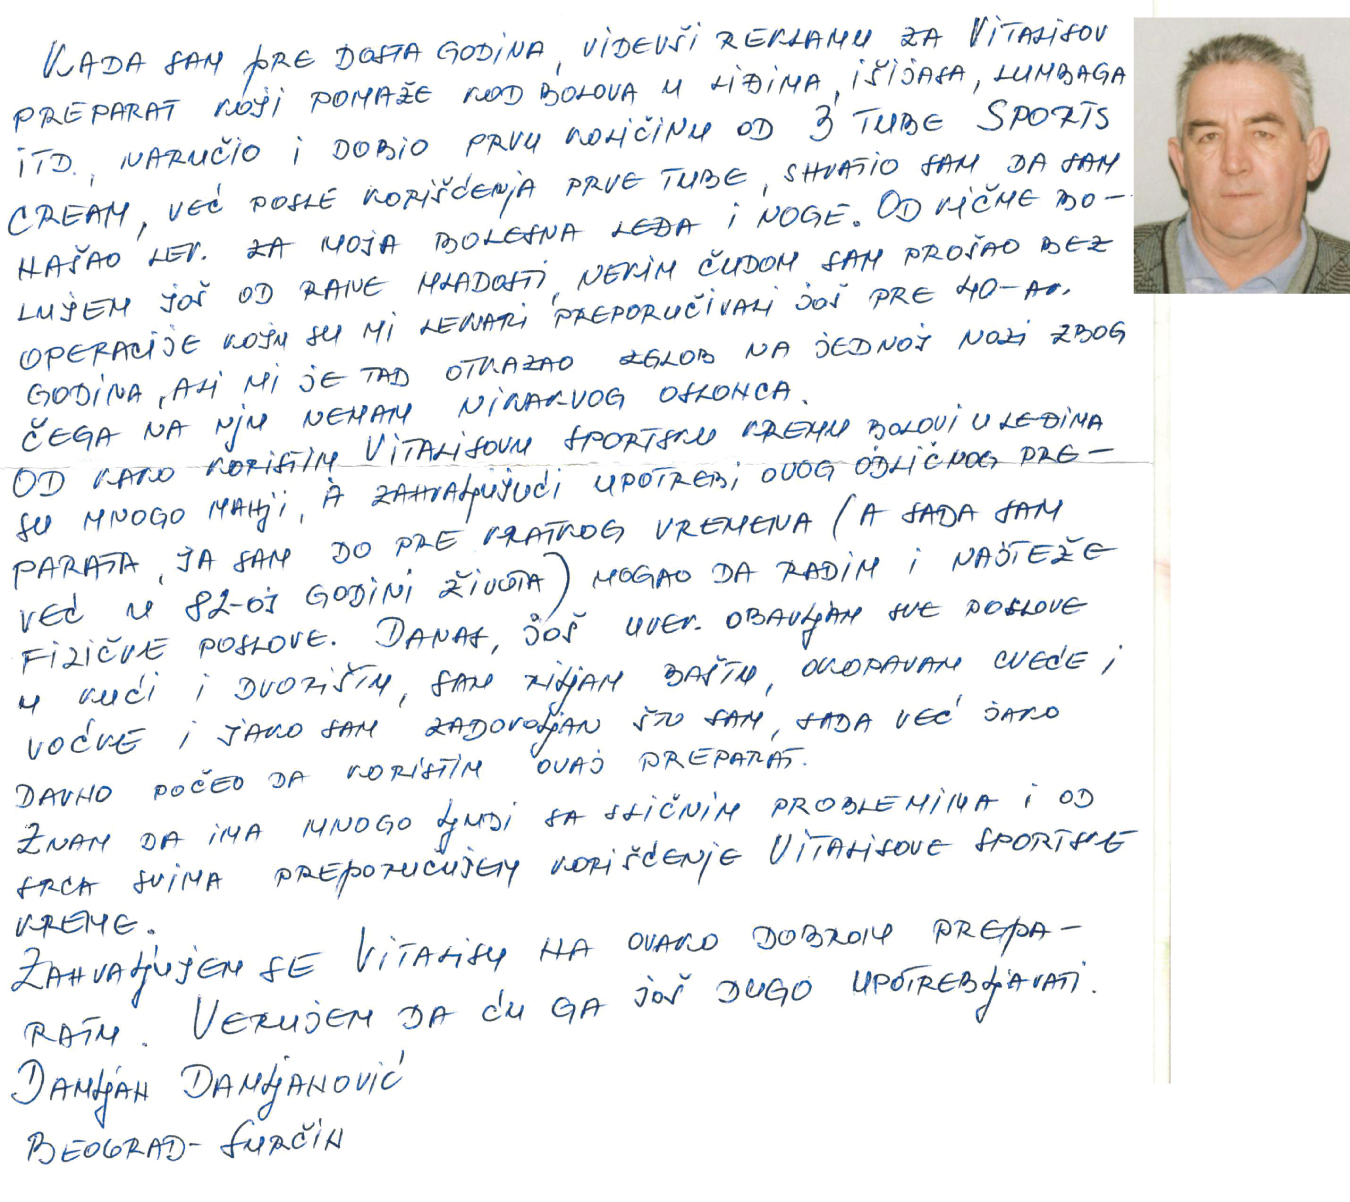 KADA SAM PRE DOSTA GODINA, VIDEVŠI REKLAMU ZA VITALISOV
PREPARAT KOJI POMAŽE KOD BOLOVA U LEĐIMA, IŠIJASA, LUMBAGA
ITD., NARUČIO I DOBIO PRVU KOLIČINU OD 3 TUBE SPORTS
CREAM, VEĆ POSLE KORIŠĆENJA PRVE TUBE, SHVATIO SAM DA SAM
NAŠAO LEK ZA MOJA BOLESNA LEĐA I NOGE. OD KIČME BO-
LUJEM JOŠ OD RANE MLADOSTI, NEKIM ČUDOM SAM PROŠAO BEZ
OPERACIJE KOJU SU MI LEKARI PREPORUČIVALI JOŠ PRE 40-AK
GODINA, ALI MI JE TAD OTKAZAO ZGLOB NA JEDNOJ NOZI ZBOG
ČEGA NA NJU NEMAM NIKAKVOG OSLONCA.
OD KAKO KORISTIM VITALISOVU SPORTSKU KREMU BOLOVI U LEĐIMA
SU MNOGO MANJI, A ZAHVALJUJUĆI UPOTREBI OVOG ODLIČNOG PRE-
PARATA, JA SAM DO PRE KRATKOG VREMENA (A SADA SAM
VEĆ U 82-OJ GODINI ŽIVOTA) MOGAO DA RADIM I NAJTEŽE
FIZIČKE POSLOVE. DANAS, JOŠ UVEK OBAVLJAM SVE POSLOVE
U KUĆI I DVORIŠTU, SAM RILJAM BAŠTU, OKOPAVAM CVEĆE I
VOĆKE I JAKO SAM ZADOVOLJAN ŠTO SAM, SADA VEĆ JAKO
DAVNO POČEO DA KORISTIM OVAJ PREPARAT.
ZNAM DA IMA MNOGO LJUDI SA SLIČNIM PROBLEMIMA I OD
SRCA SVIMA PREPORUČUJEM KORIŠĆENJE VITALISOVE SPORTSKE
KREME.
ZAHVALJUJEM SE VITALISU NA OVAKO DOBROM PREPA-
RATU. VERUJEM DA ĆU GA JOŠ DUGO UPOTREBLJAVATI.
DAMLJAN DAMLJANOVIĆ
BEOGRAD- SURČIN